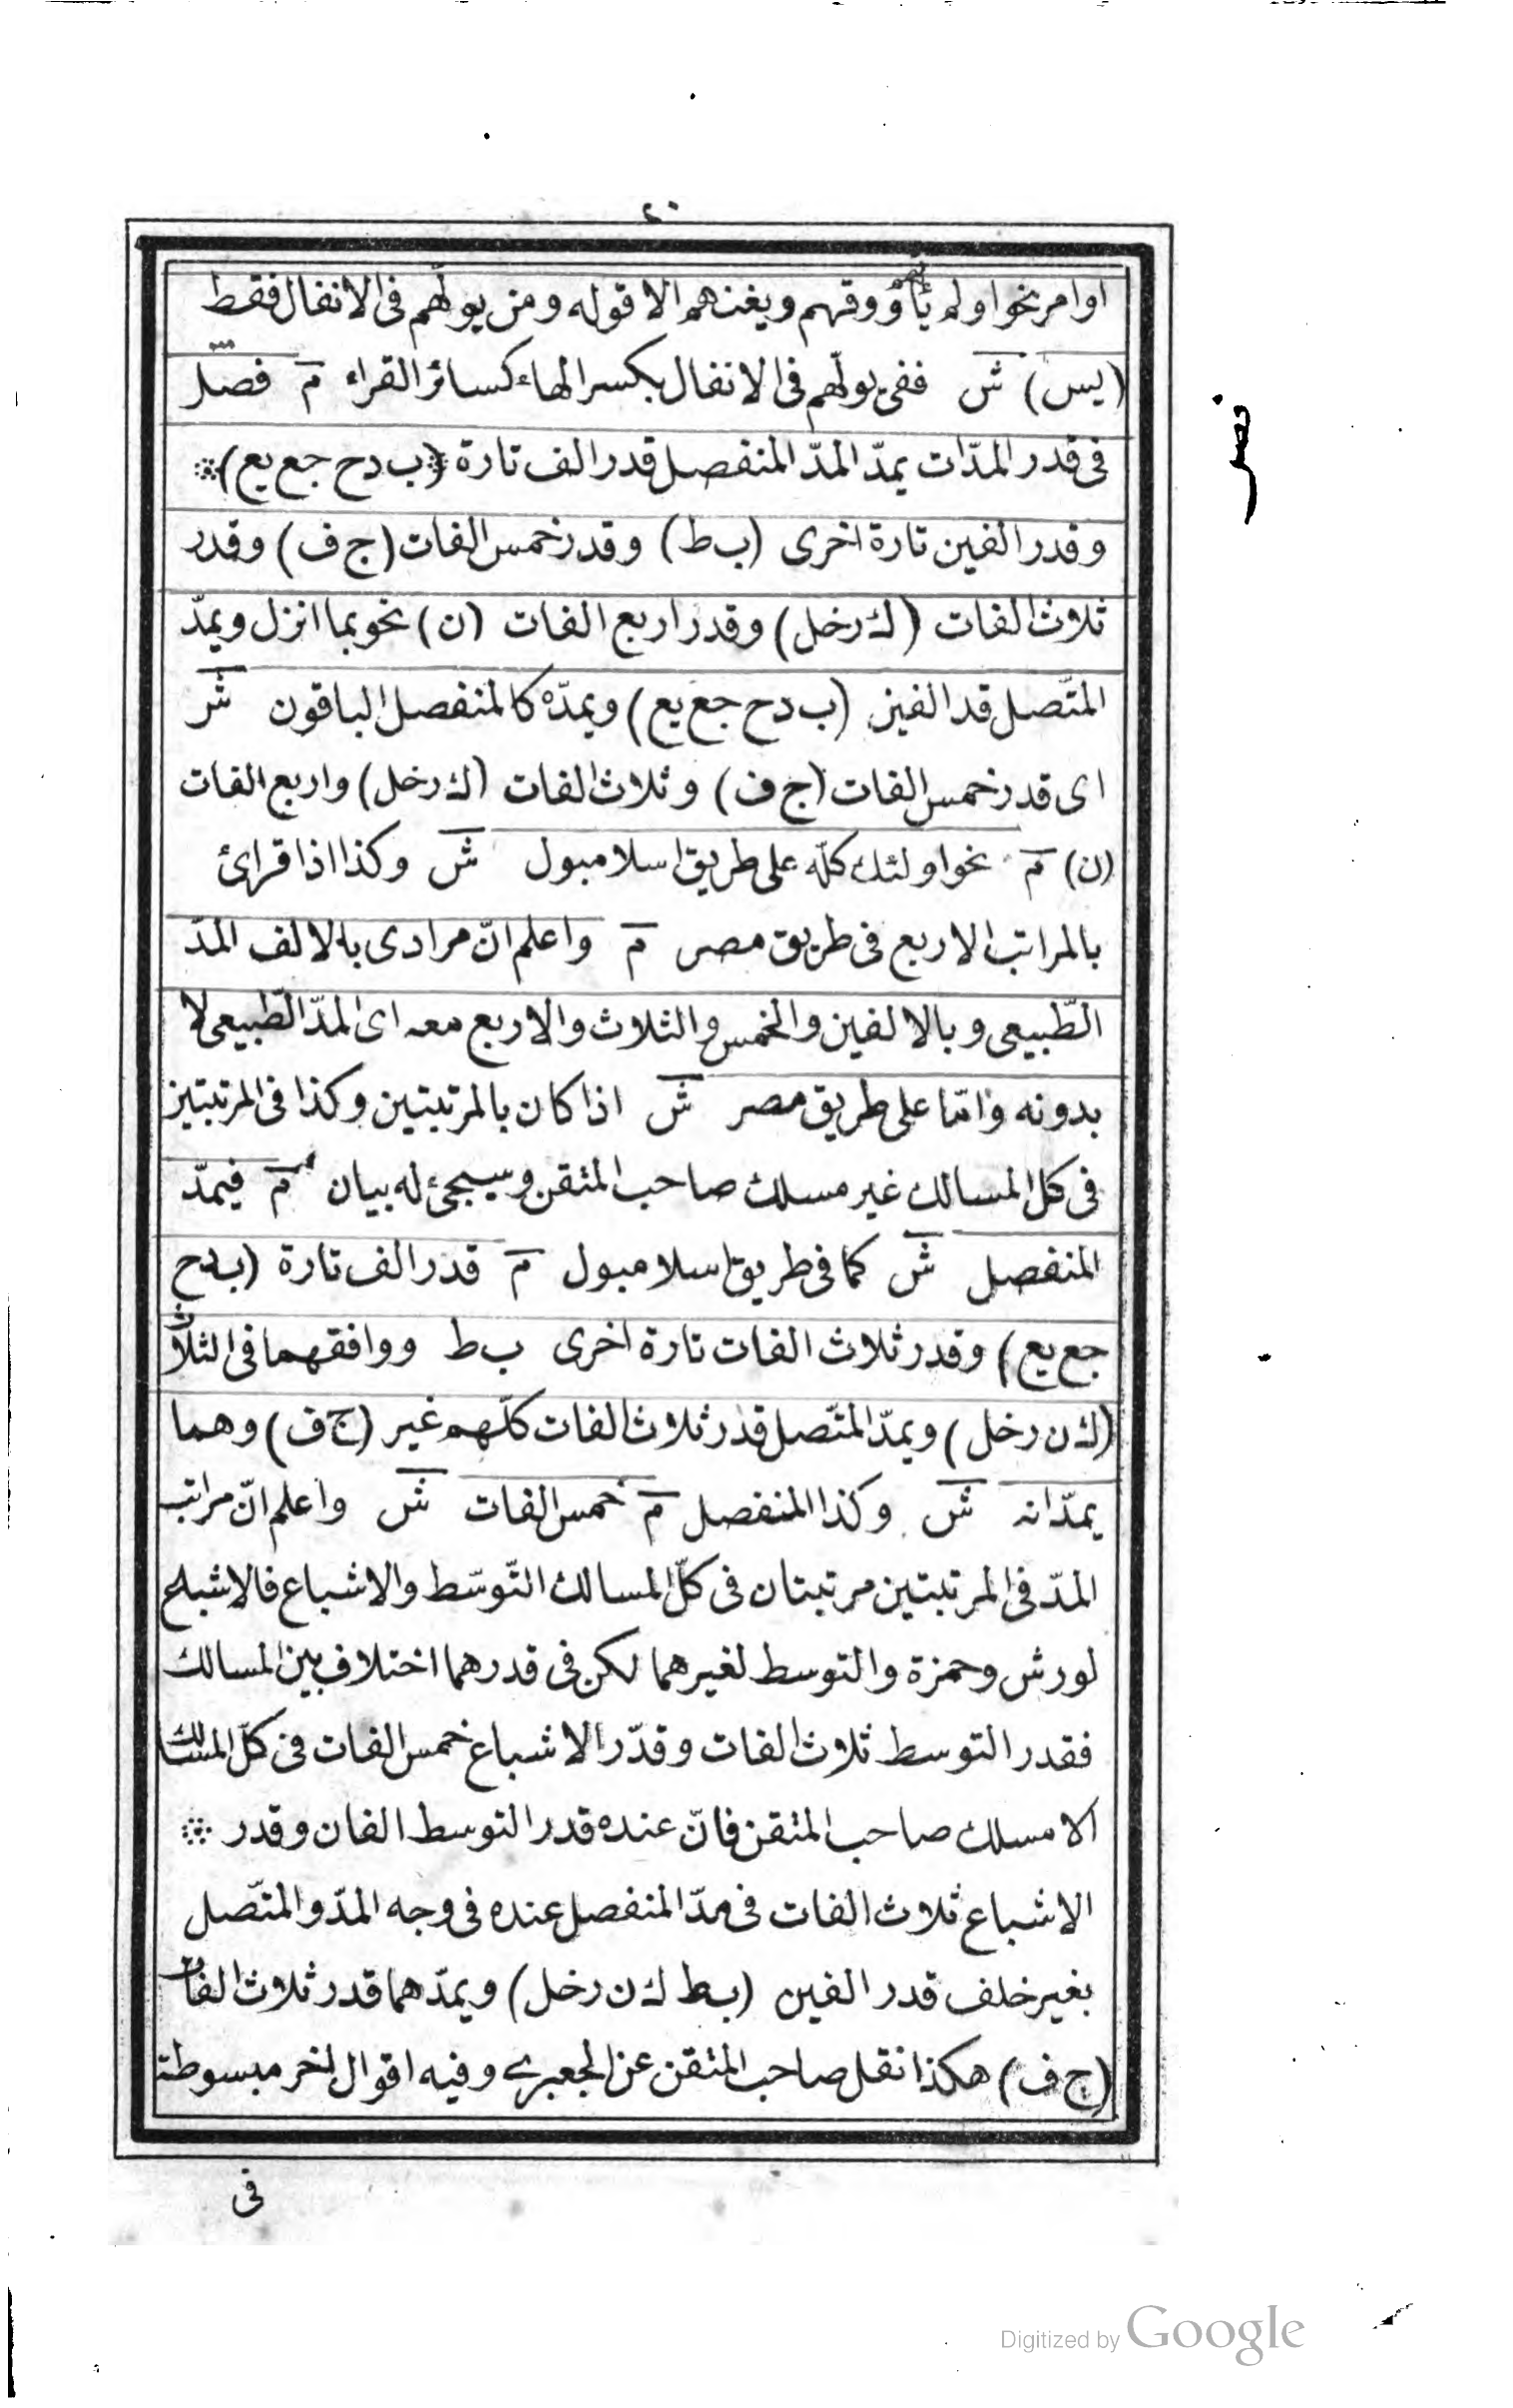 ٢٠
اوامر نحو اولم يأتهم وقهم ويغنهم الا قوله ومن يولّهم فى الانفال فقط
(يس) ش ففى يولّهم فى الانفال بكسر الهاء كسائر القراء م فصل
فصل
فى قدر المدّات يمدّ المدّ المنفصل قدر الف تارة (ب دح جع يع)
وقدر الفين تارة اخرى (ب ط) وقدر خمس الفات (ج ف) وقدر
ثلاث الفات (ك رخل) وقدر اربع الفات (ن) نحو بما انزل ويمدّ
المتّصل قد الفين (ب دح جع يع) ويمدّه كالمنفصل الباقون ش
اى قدر خمس الفات (ج ف) وثلاث الفات (ك رخل) واربع الفات
(ن) م نحو اولئك كلّه على طريق اسلامبول ش وكذا اذا قرائ
بالمراتب الاربع فى طريق مصر م واعلم انّ مرادى بالالف المدّ
الطّبيعى وبالالفين والخمس والثلاث والاربع معه اى المدّ الطّبيعى لا
بدونه وامّا على طريق مصر ش اذا كان بالمرتبتين وكذا فى المرتبتين
فى كل المسالك غير مسلك صاحب المتقن وسيجئ له بيان م فيمدّ
المنفصل ش كما فى طريق اسلامبول م قدر الف تارة (ب دح
جع يع) وقدر ثلاث الفات تارة اخرى ب ط ووافقهما فى الثلاث
(ك ن رخل) ويمدّ المتّصل قدر ثلاث الفات كلّهم غير (ج ف) وهما
يمدّانه ش وكذا المنفصل م خمس الفات ش واعلم انّ مراتب
المدّ فى المرتبتين مرتبتان فى كلّ المسالك التّوسّط والاشباع فالاشباع
لورش وحمزة والتوسط لغيرهما لكن فى قدرهما اختلاف بين المسالك
فقدر التوسط ثلاث الفات وقدّر الاشباع خمس الفات فى كلّ المسالك
الا مسلك صاحب المتقن فانّ عنده قدر التوسط الفان وقدر
الاشباع ثلاث الفات فى مدّ المنفصل عنده فى وجه المدّ والمتّصل
بغير خلف قدر الفين (ب ط ك ن رخل) ويمدّهما قدر ثلاث الفات
(ج ف) هكذا نقل صاحب المتقن عن الجعبرى وفيه اقوال اخر مبسوطة
فى
Digitized by Google